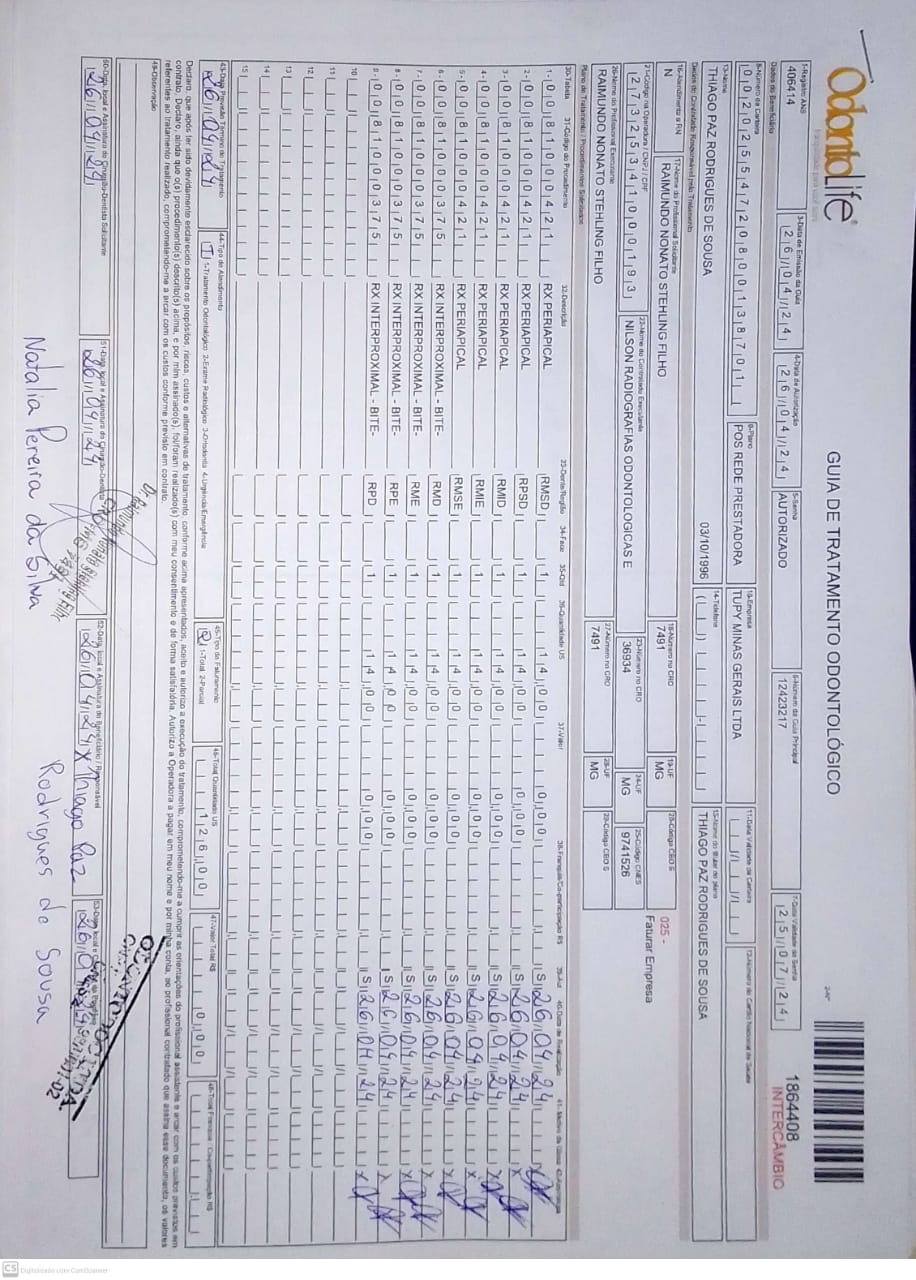 OdontoLife®
GUIA DE TRATAMENTO ODONTOLÓGICO
2-Nº
1864408
INTERCÂMBIO
1-Registro ANS
406414
3-Data de Emissão da Guia
26/04/24
4-Data de Autorização
26/04/24
5-Senha
AUTORIZADO
6-Número da Guia Principal
12423217
7-Data Validade da Senha
25/07/24
Dados do Beneficiário
8-Número da Carteira
00202554720800138701
9-Plano
POS REDE PRESTADORA
10-Empresa
TUPY MINAS GERAIS LTDA
11-Data Validade da Carteira
12-Número do Cartão Nacional de Saúde
13-Nome
THIAGO PAZ RODRIGUES DE SOUSA
03/10/1996
14-Telefone
15-Nome do titular do plano
THIAGO PAZ RODRIGUES DE SOUSA
Dados do Contratado Responsável pelo Tratamento
16-Atendimento a RN
N
17-Nome do Profissional Solicitante
RAIMUNDO NONATO STEHLING FILHO
18-Número no CRO
7491
19-UF
MG
20-Código CBO S
025 -
Faturar Empresa
21-Código na Operadora / CNPJ / CPF
27325341000193
22-Nome do Contratado Executante
NILSON RADIOGRAFIAS ODONTOLOGICAS E
23-Número no CRO
36934
24-UF
MG
25-Código CNES
9741526
26-Nome do Profissional Executante
RAIMUNDO NONATO STEHLING FILHO
27-Número no CRO
7491
28-UF
MG
29-Código CBO S
Plano de Tratamento / Procedimentos Solicitados
30-Tabela 31-Código do Procedimento 32-Descrição 33-Dente/Região 34-Face 35-Qtd 36-Quantidade US 37-Valor 38-Franquia/Co-participação R$ 39-Aut 40-Data de Realização 42-Assinatura
1- 00 81000421 RX PERIAPICAL RMSD 1 14,00 0,00 S 26/04/24
2- 00 81000421 RX PERIAPICAL RPSD 1 14,00 0,00 S 26/04/24
3- 00 81000421 RX PERIAPICAL RMID 1 14,00 0,00 S 26/04/24
4- 00 81000421 RX PERIAPICAL RMIE 1 14,00 0,00 S 26/04/24
5- 00 81000421 RX PERIAPICAL RMSE 1 14,00 0,00 S 26/04/24
6- 00 81000375 RX INTERPROXIMAL - BITE- RMD 1 14,00 0,00 S 26/04/24
7- 00 81000375 RX INTERPROXIMAL - BITE- RME 1 14,00 0,00 S 26/04/24
8- 00 81000375 RX INTERPROXIMAL - BITE- RPE 1 14,00 0,00 S 26/04/24
9- 00 81000375 RX INTERPROXIMAL - BITE- RPD 1 14,00 0,00 S 26/04/24
10
11
12
13
14
15
43-Data Previsão Término do Tratamento
26/04/24
44-Tipo de Atendimento
1-Tratamento Odontológico 2-Exame Radiológico 3-Ortodontia 4-Urgência/Emergência
45-Tipo de Faturamento
1-Total 2-Parcial
46-Total Quantidade US
126,00
47-Valor Total R$
0,00
48-Total Franquia / Co-participação R$
Declaro, que após ter sido devidamente esclarecido sobre os propósitos, riscos, custos e alternativas de tratamento conforme acima apresentados, aceito e autorizo a execução do tratamento, comprometendo-me a cumprir as orientações do profissional assistente e arcar com os custos previstos em
contrato. Declaro, ainda que o(s) procedimento(s) descrito(s) acima, e por mim assinado(s), foi/foram realizado(s) com meu consentimento e de forma satisfatória. Autorizo a Operadora a pagar em meu nome e por minha conta, ao profissional contratado que assina esse documento, os valores
referentes ao tratamento realizado, comprometendo-me a arcar com os custos conforme previsto em contrato.
49-Observação
50-Data, local e Assinatura do Cirurgião-Dentista Solicitante
26/04/24
51-Data, local e Assinatura do Cirurgião-Dentista
26/04/24
52-Data, local e Assinatura do Beneficiário / Responsável
26/04/24 x Thiago Paz
Rodrigues de Sousa
Natalia Pereira da Silva
CS Digitalizado com CamScanner